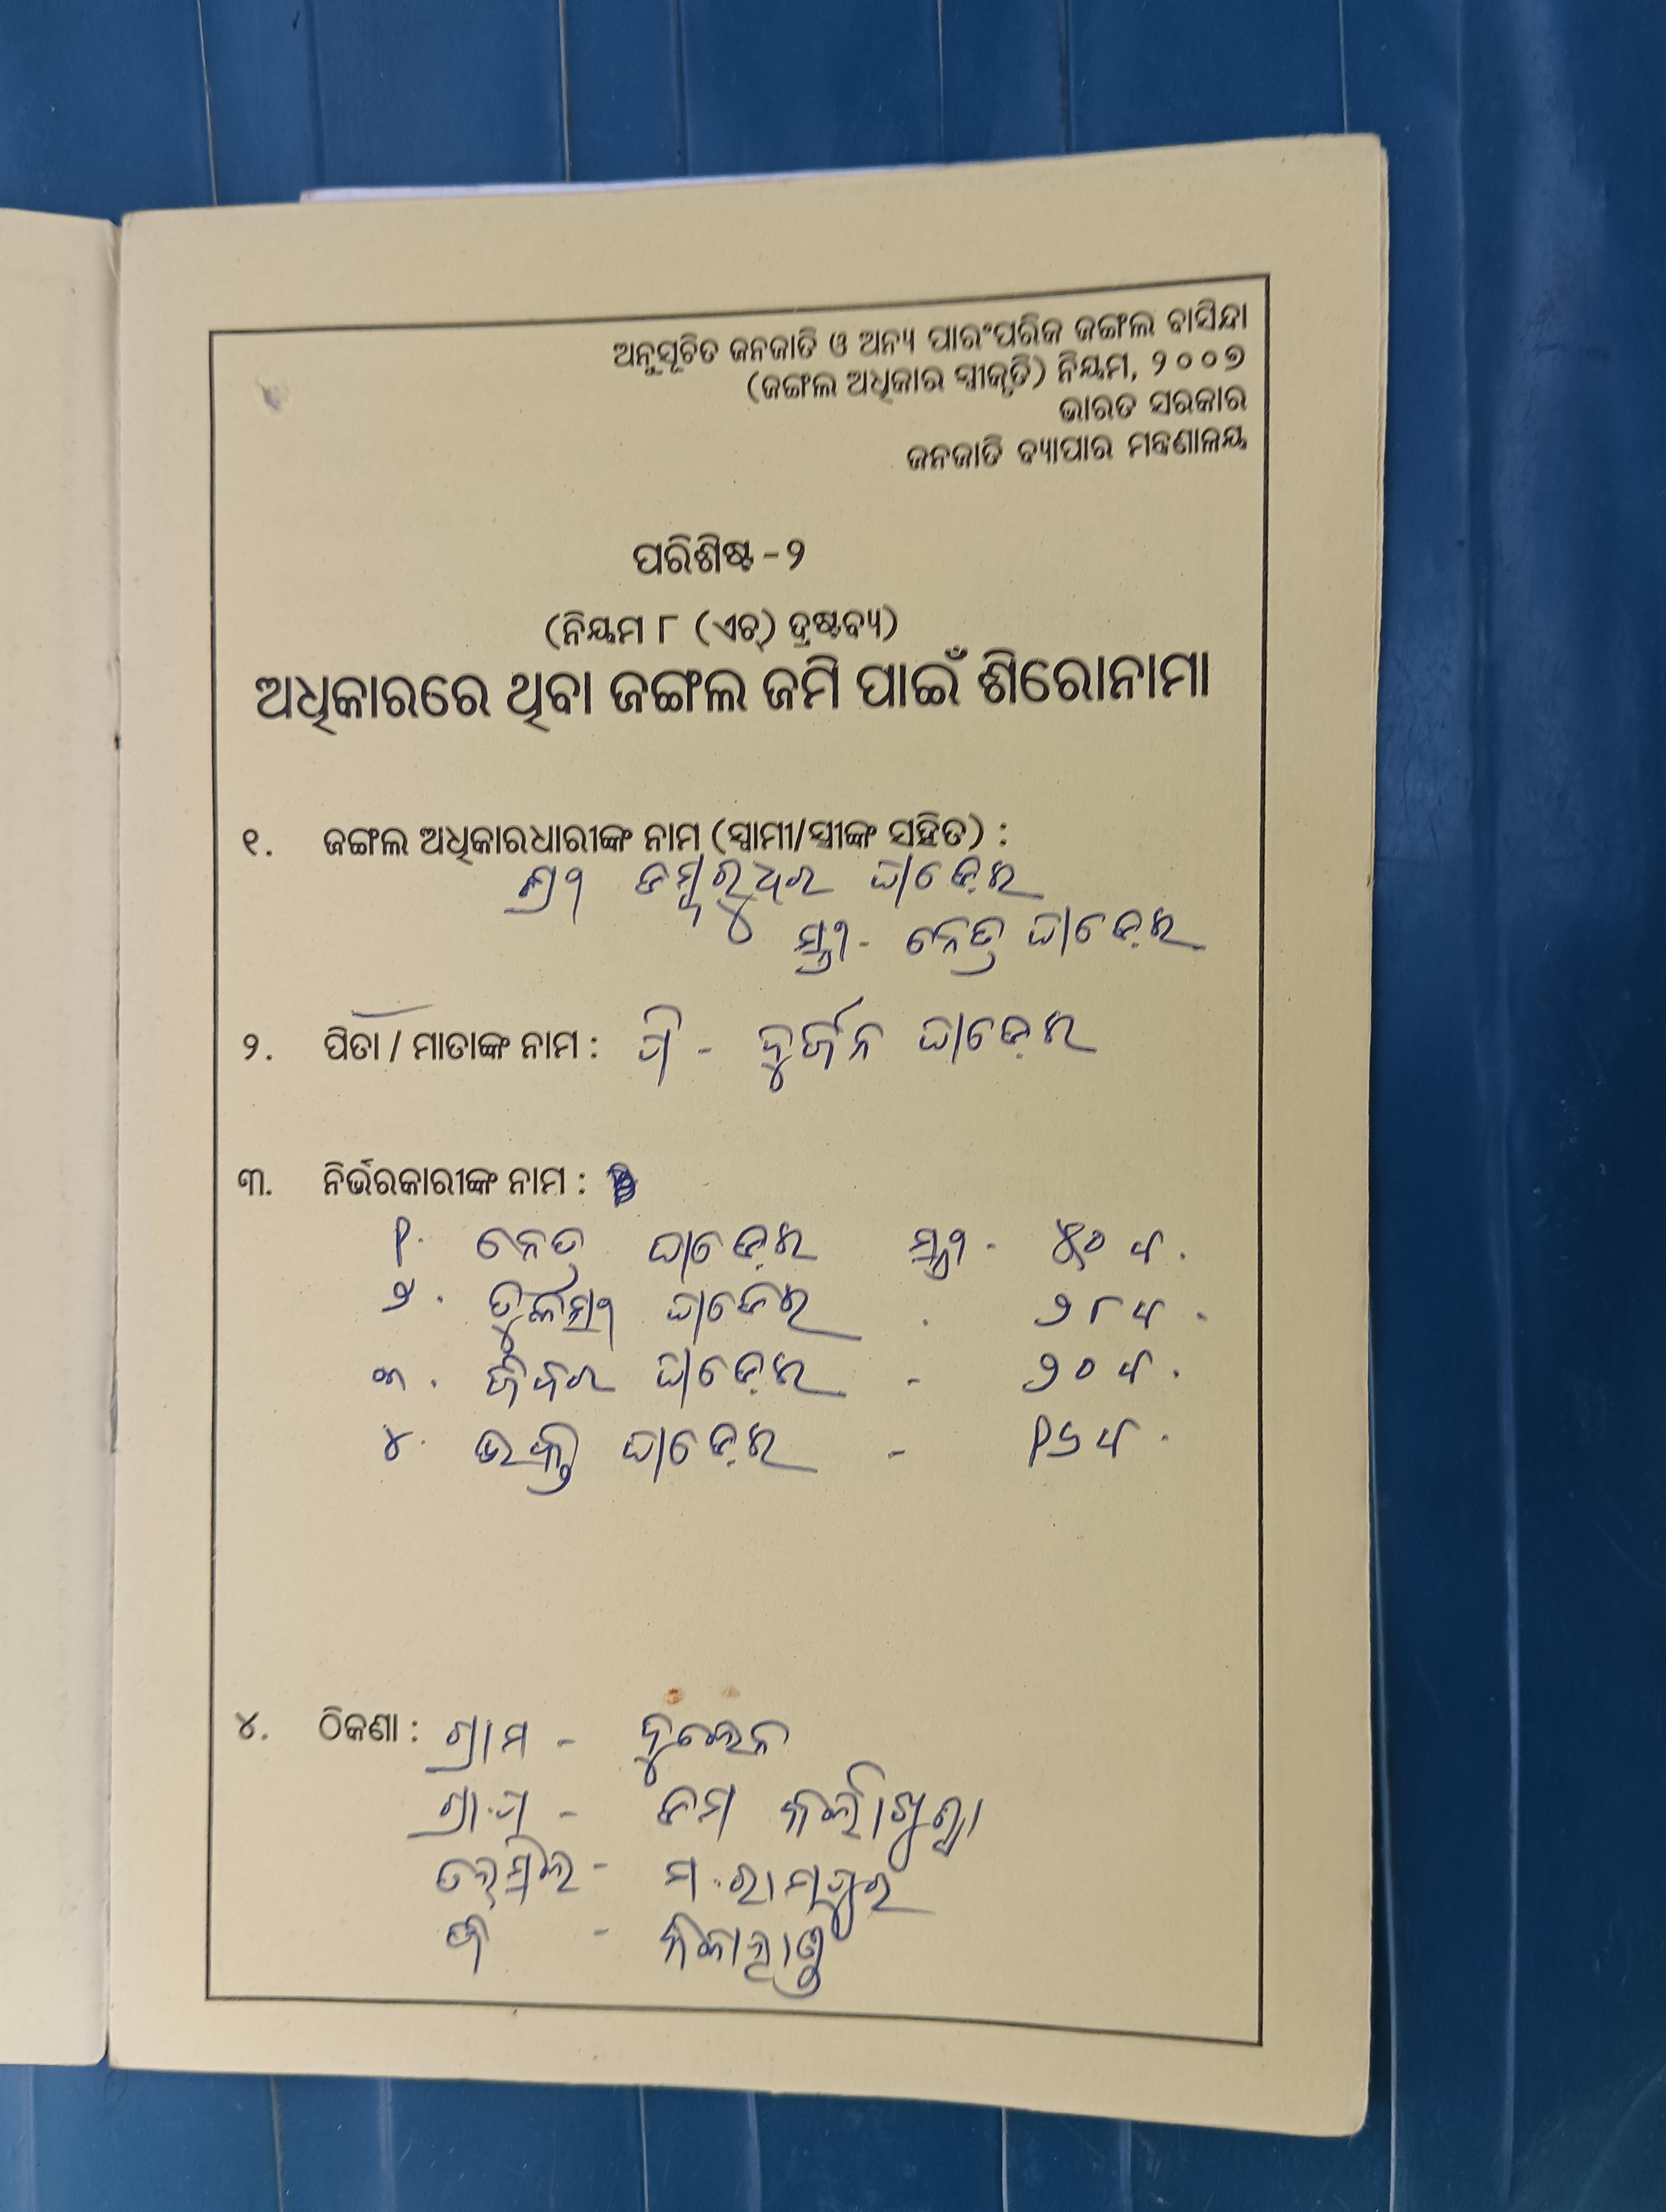 ଅନୁସୂଚିତ ଜନଜାତି ଓ ଅନ୍ୟ ପାରଂପରିକ ଜଙ୍ଗଲ ବାସିନ୍ଦା
(ଜଙ୍ଗଲ ଅଧିକାର ସ୍ୱୀକୃତି) ନିୟମ, ୨୦୦୭
ଭାରତ ସରକାର
ଜନଜାତି ବ୍ୟାପାର ମନ୍ତ୍ରଣାଳୟ
ପରିଶିଷ୍ଟ - ୨
(ନିୟମ ୮ (ଏଚ୍) ଦ୍ରଷ୍ଟବ୍ୟ)
ଅଧିକାରରେ ଥିବା ଜଙ୍ଗଲ ଜମି ପାଇଁ ଶିରୋନାମା
୧. ଜଙ୍ଗଲ ଅଧିକାରଧାରୀଙ୍କ ନାମ (ସ୍ୱାମୀ/ସ୍ତ୍ରୀଙ୍କ ସହିତ) :
ଶ୍ରୀ ଡମ୍ବରୁଧର
ସ୍ତ୍ରୀ - ନେତ୍ର
୨. ପିତା / ମାତାଙ୍କ ନାମ : ପି - ଦୁର୍ଜନ
୩. ନିର୍ଭରକାରୀଙ୍କ ନାମ :
୧. ନେତ୍ର ସ୍ତ୍ରୀ - ୫୦ ବ.
୨. ୨୮ ବ.
୩. - ୨୦ ବ.
୪. ଭକ୍ତ - ୧୬ ବ.
୪. ଠିକଣା : ଗ୍ରାମ -
ଗ୍ରା.ପ -
ତହସିଲ - ମ. ରାମପୁର
ଜି - କଳାହାଣ୍ଡି